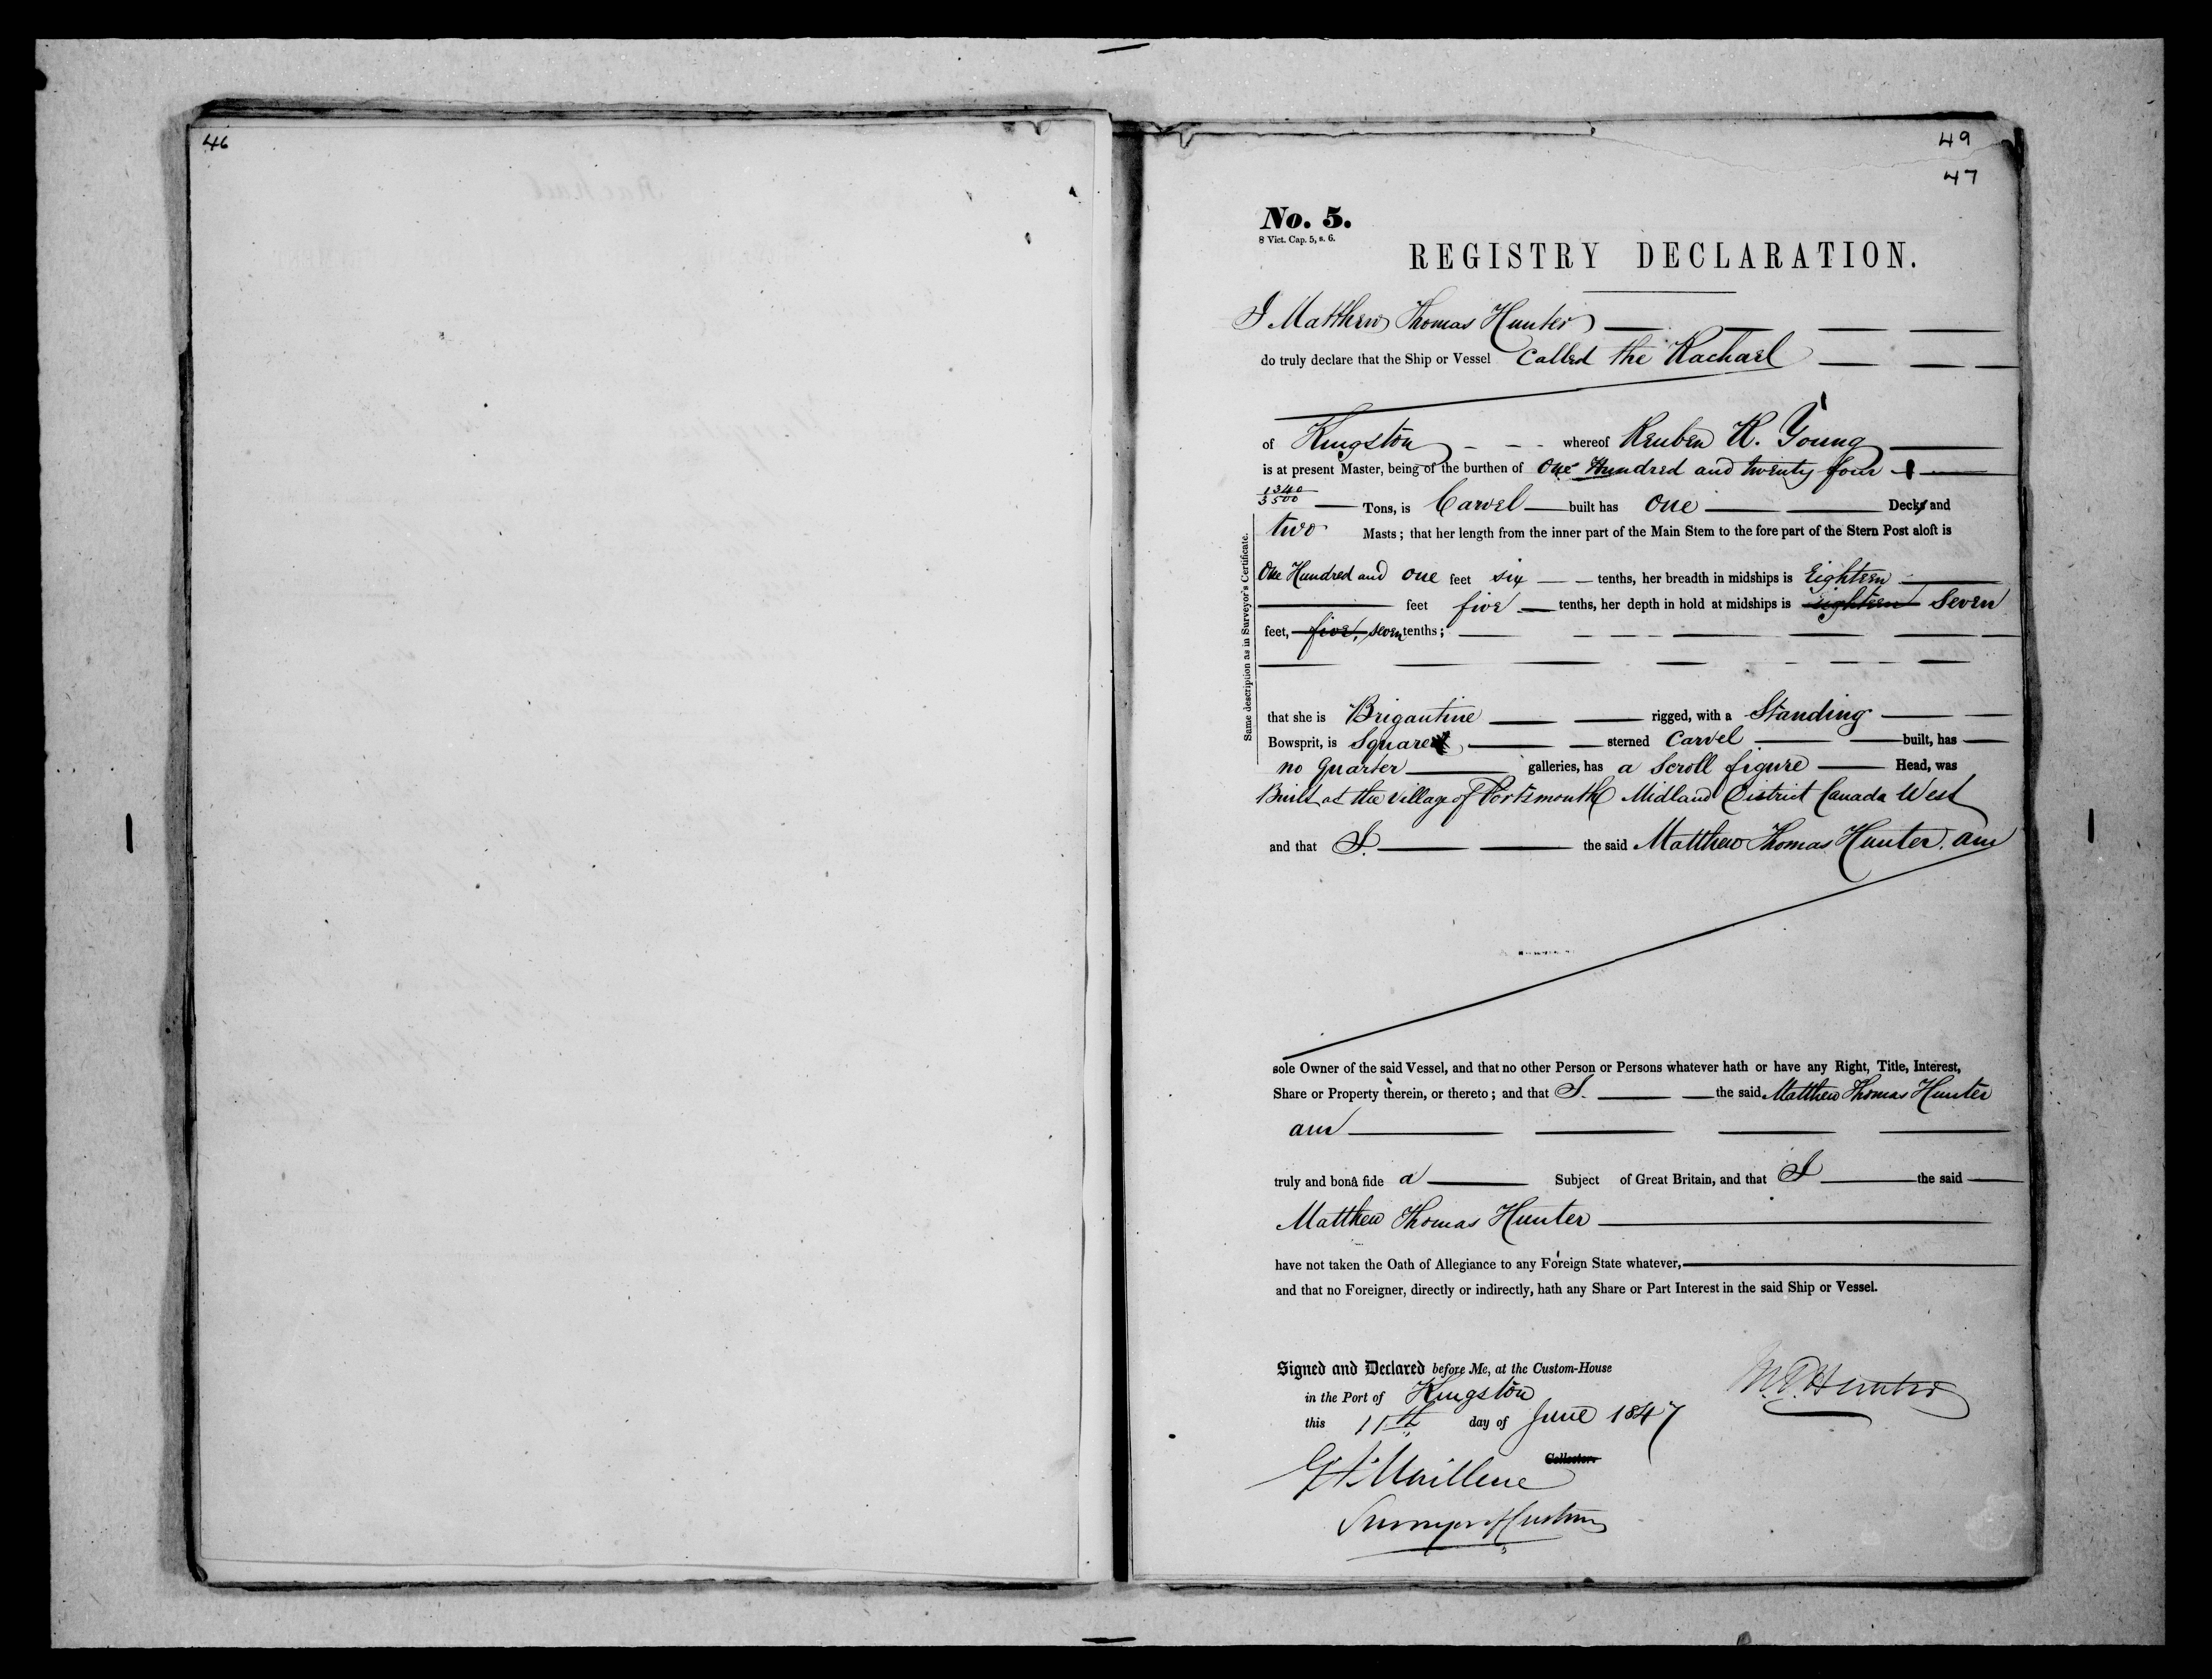 46
49
47
No. 5.
8 Vict. Cap. 5, s. 6.
REGISTRY DECLARATION.
I Matthew Thomas Hunter
do truly declare that the Ship or Vessel called the Rachael
of Kingston whereof Reuben R. Young
is at present Master, being of the burthen of One Hundred and twenty four
1340/3500 Tons, is Carvel built has One Decks and
two Masts; that her length from the inner part of the Main Stem to the fore part of the Stern Post aloft is
One Hundred and one feet six tenths, her breadth in midships is Eighteen
feet five tenths, her depth in hold at midships is eighteen Seven
feet, five, seven tenths;
Same description as in Surveyor's Certificate.
that she is Brigantine rigged, with a Standing
Bowsprit, is Square sterned Carvel built, has
no Quarter galleries, has a Scroll figure Head, was
Built at the village of Portsmouth Midland District Canada West
and that I the said Matthew Thomas Hunter am
sole Owner of the said Vessel, and that no other Person or Persons whatever hath or have any Right, Title, Interest,
Share or Property therein, or thereto; and that I the said Matthew Thomas Hunter
am
truly and bonâ fide a Subject of Great Britain, and that I the said
Matthew Thomas Hunter
have not taken the Oath of Allegiance to any Foreign State whatever,
and that no Foreigner, directly or indirectly, hath any Share or Part Interest in the said Ship or Vessel.
Signed and Declared before Me, at the Custom-House
in the Port of Kingston
this 11th day of June 1847
M. T. Hunter
Collector.